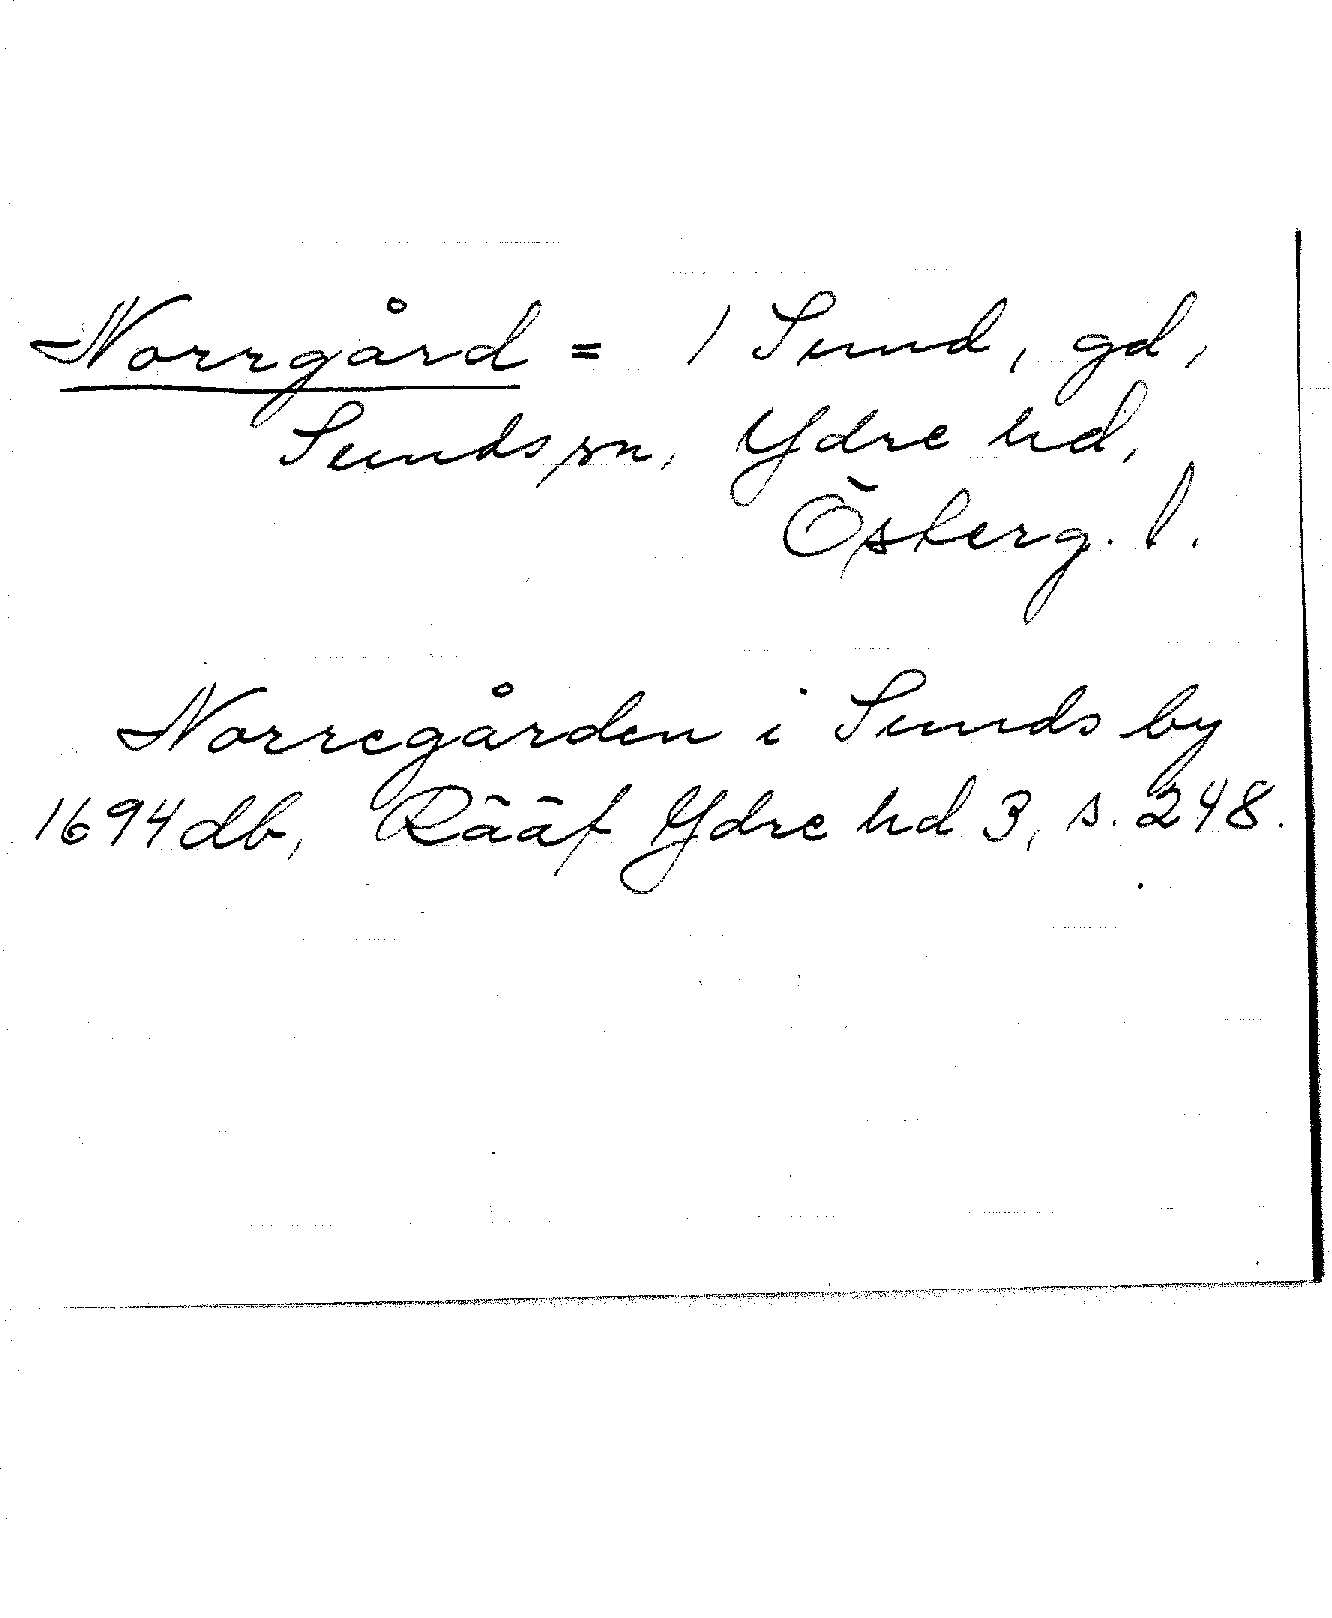 Norrgård = 1 Sund, gd,
Sunds sn, Ydre hd,
Österg. l.
Norregården i Sunds by
1694 db, Rääf Ydre hd 3, s. 248.